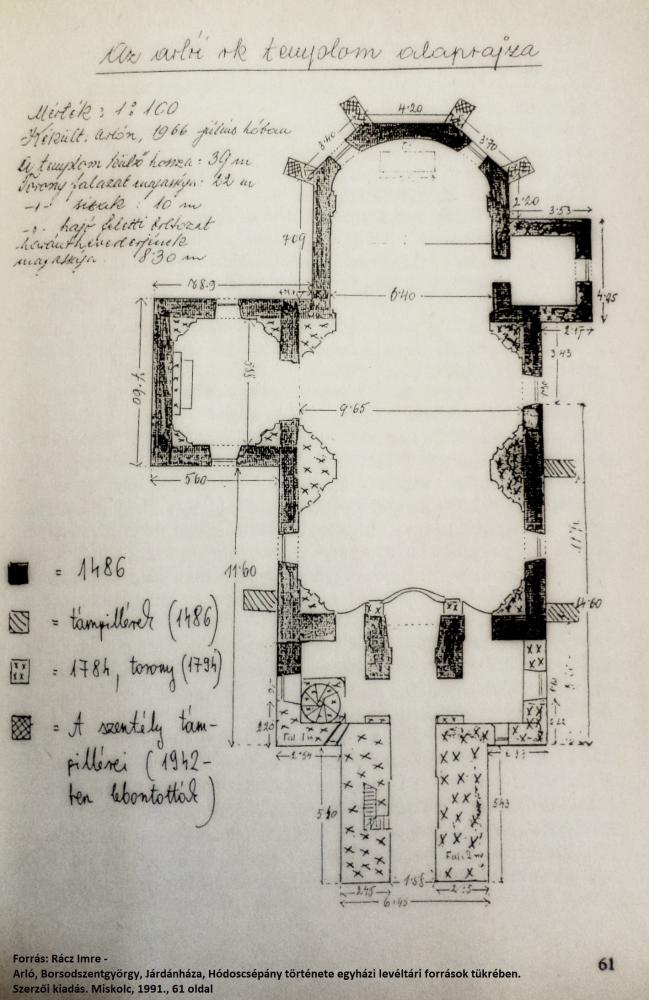 Az arlói rk templom alaprajza
Mérték: 1:100
Készült: Arlón, 1966 július hóban
A templom külső hossza: 39 m
Torony falazat magassága: 22 m
-"- sisak: 10 m
-"- hajó feletti boltozat
magassága. 8·30 m
4·20
3·40
3·70
2·20
3·53
7·09
6·40
4·95
2·17
3·43
7·60
9·65
5·60
11·60
14·60
= 1486
= támpillérek (1486)
= 1784, torony (1794)
= A szentély tám-
pillérei (1942-
ben lebontották)
2·20
2·54
5·43
1·55
2·45
6·45
61
Forrás: Rácz Imre -
Arló, Borsodszentgyörgy, Járdánháza, Hódoscsépány története egyházi levéltári források tükrében.
Szerzői kiadás. Miskolc, 1991., 61 oldal